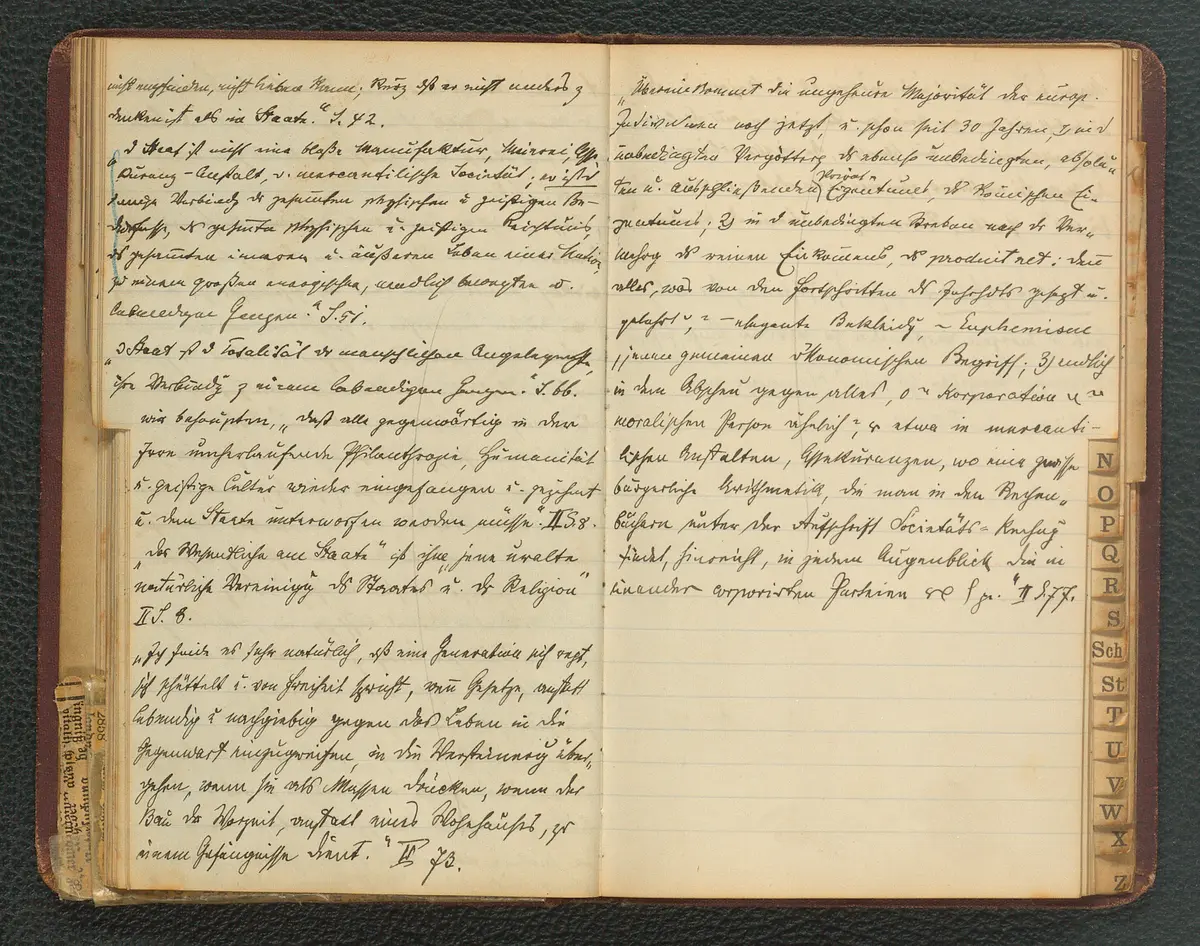 nicht empfinden, nicht lieben kann; kurz dß er nicht anders z
denken ist als im Staate." S. 42.
„D Staat ist nicht eine bloße Manufaktur, Meierei, Asse-
kuranz-Anstalt, o. mercantilische Societät; er ist d
innige Verbindg der gesamten physischen u geistigen Be-
dürfnisse, ds gesamten physischen u. geistigen Reichtums,
ds gesamten inneren u. äußeren Leben einer Nation
zu einem großen energischen, unendlich bewegten u.
lebendigen Ganzen." S. 51.
„D Staat ist d Totalität der menschlichen Angelegenheiten,
ihre Verbindg z einem lebendigen Ganzen." S. 66.
wir behaupten, „daß alle gegenwärtig in der
Irre umherlaufende Philanthropie, Humanität
u. geistige Cultur wieder eingefangen u. gezähmt
u. dem Staate unterworfen werden müsse." II S. 8.
„Das Wesentliche am Staate" ist ihm „jene uralte
natürliche Vereinigg ds Staates u. der Religion"
II S. 8.
„Ich finde es sehr natürlich, dß eine Generation sich regt,
sich schüttelt u. von Freiheit spricht, wenn Gesetze, anstatt
lebendig u nachgiebig gegen das Leben in die
Gegenwart einzugreifen, in die Versteinerung über-
gehen, wenn sie als Massen drücken, wenn der
Bau der Vorzeit, anstatt eines Wohnhauses, zu
einem Gefängnisse dient." II 73.
„Übereinkommet die ungeheure Majorität der europ.
Individuen noch jetzt, u. schon seit 30 Jahren, 1) in d
unbedingten Vergötterg ds ebenso unbedingten, absolu-
ten u. ausschließenden Privat-Eigentums, ds Römischen Ei-
gentums; 2) in d unbedingten Streben nach der Ver-
mehrg ds reinen Einkomens, ds produit net: denn
alles, was von den Fortschritten ds Jahrhdts gesagt u.
gelehrt, – elegante Bekleidg, – Euphemisme
jenen gemeinen ökonomischen Begriff; 3) endlich
in dem Abscheu gegen alles, Korporation
moralischen Person ähnlich, etwa in mercanti-
lischen Anstalten, Assekuranzen, wo eine gewisse
bürgerliche Arithmetik, die man in den Rechen-
büchern unter der Aufschrift Societäts-Rechng
findet, hinreicht, in jedem Augenblick die in
einander corporirten Parteien II S. 77.
N
O
P
Q
R
S
Sch
St
T
U
V
W
X
Z